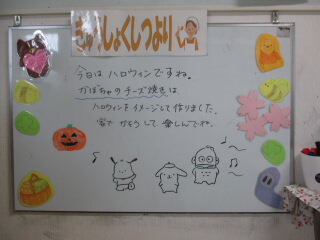 きゅうしょくしつより
今日は ハロウィンですね。
かぼちゃのチーズ焼きは
ハロウィンをイメージして作りました。
家で かそうして 楽しんでね。